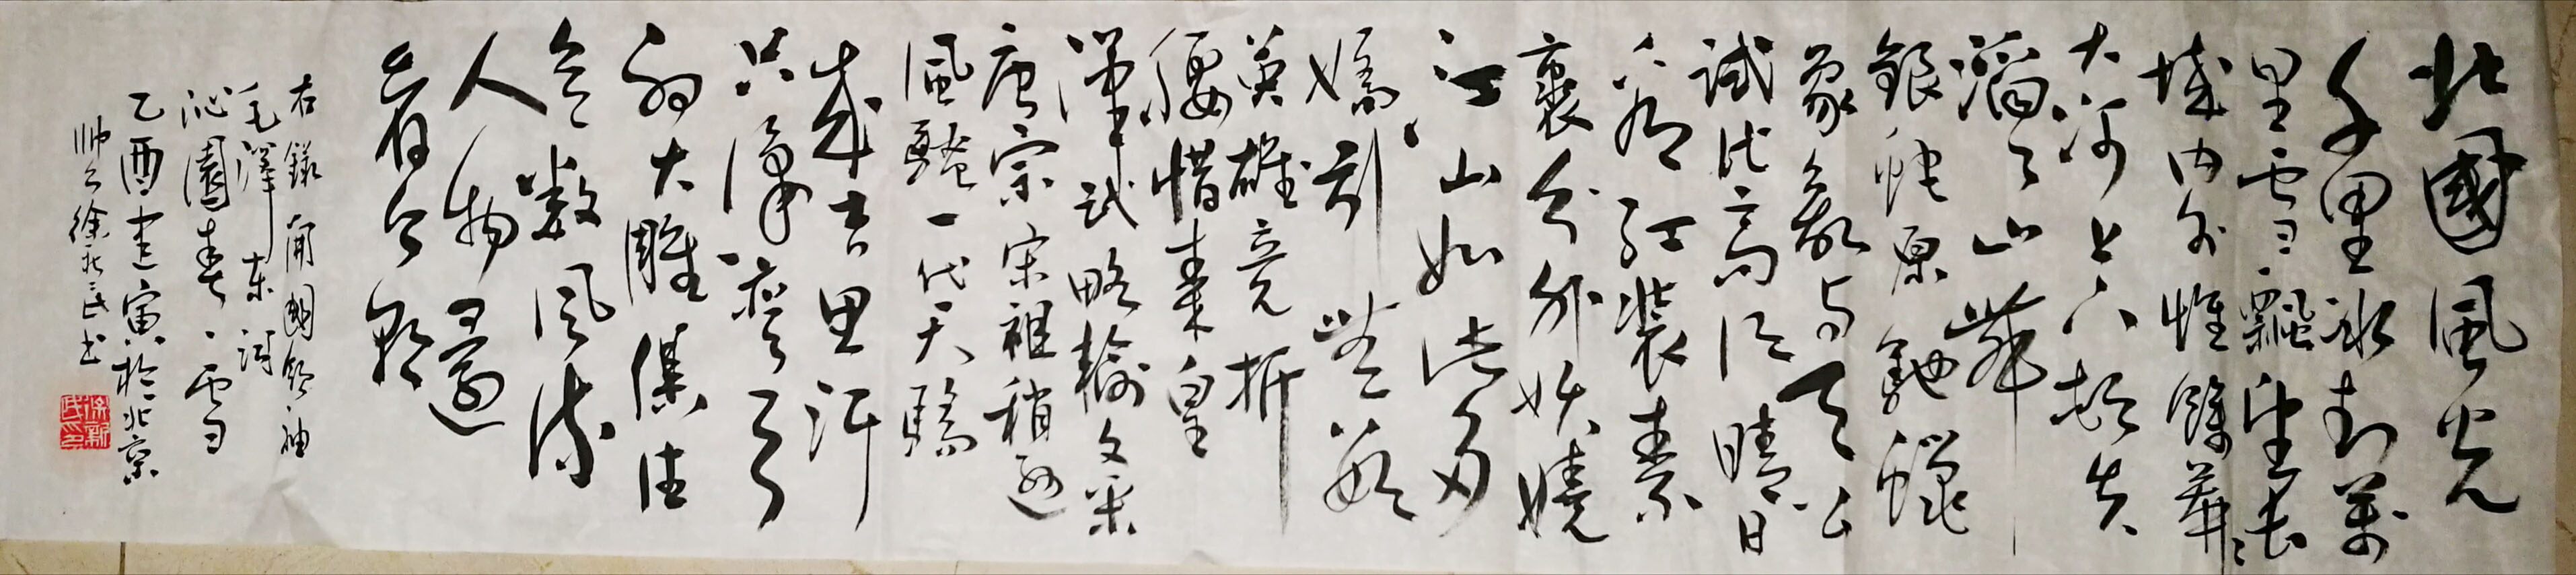 北國風光
千里冰封萬
里雪飄望長
城内外惟餘莽々
大河上下頓失
滔々山舞
銀蛇原馳蠟
象欲與天公
試比高須晴日
看紅裝素
裹分外妖嬈
江山如此多
嬌引無數
英雄競折
腰惜秦皇
漢武略輸文采
唐宗宋祖稍遜
風騷一代天驕
成吉思汗
只識彎弓
射大雕俱往
矣數風流
人物還
看今朝
右錄開國領袖
毛澤東詞
沁園春·雪
乙酉建寅於北京
徐新民书
徐新民印